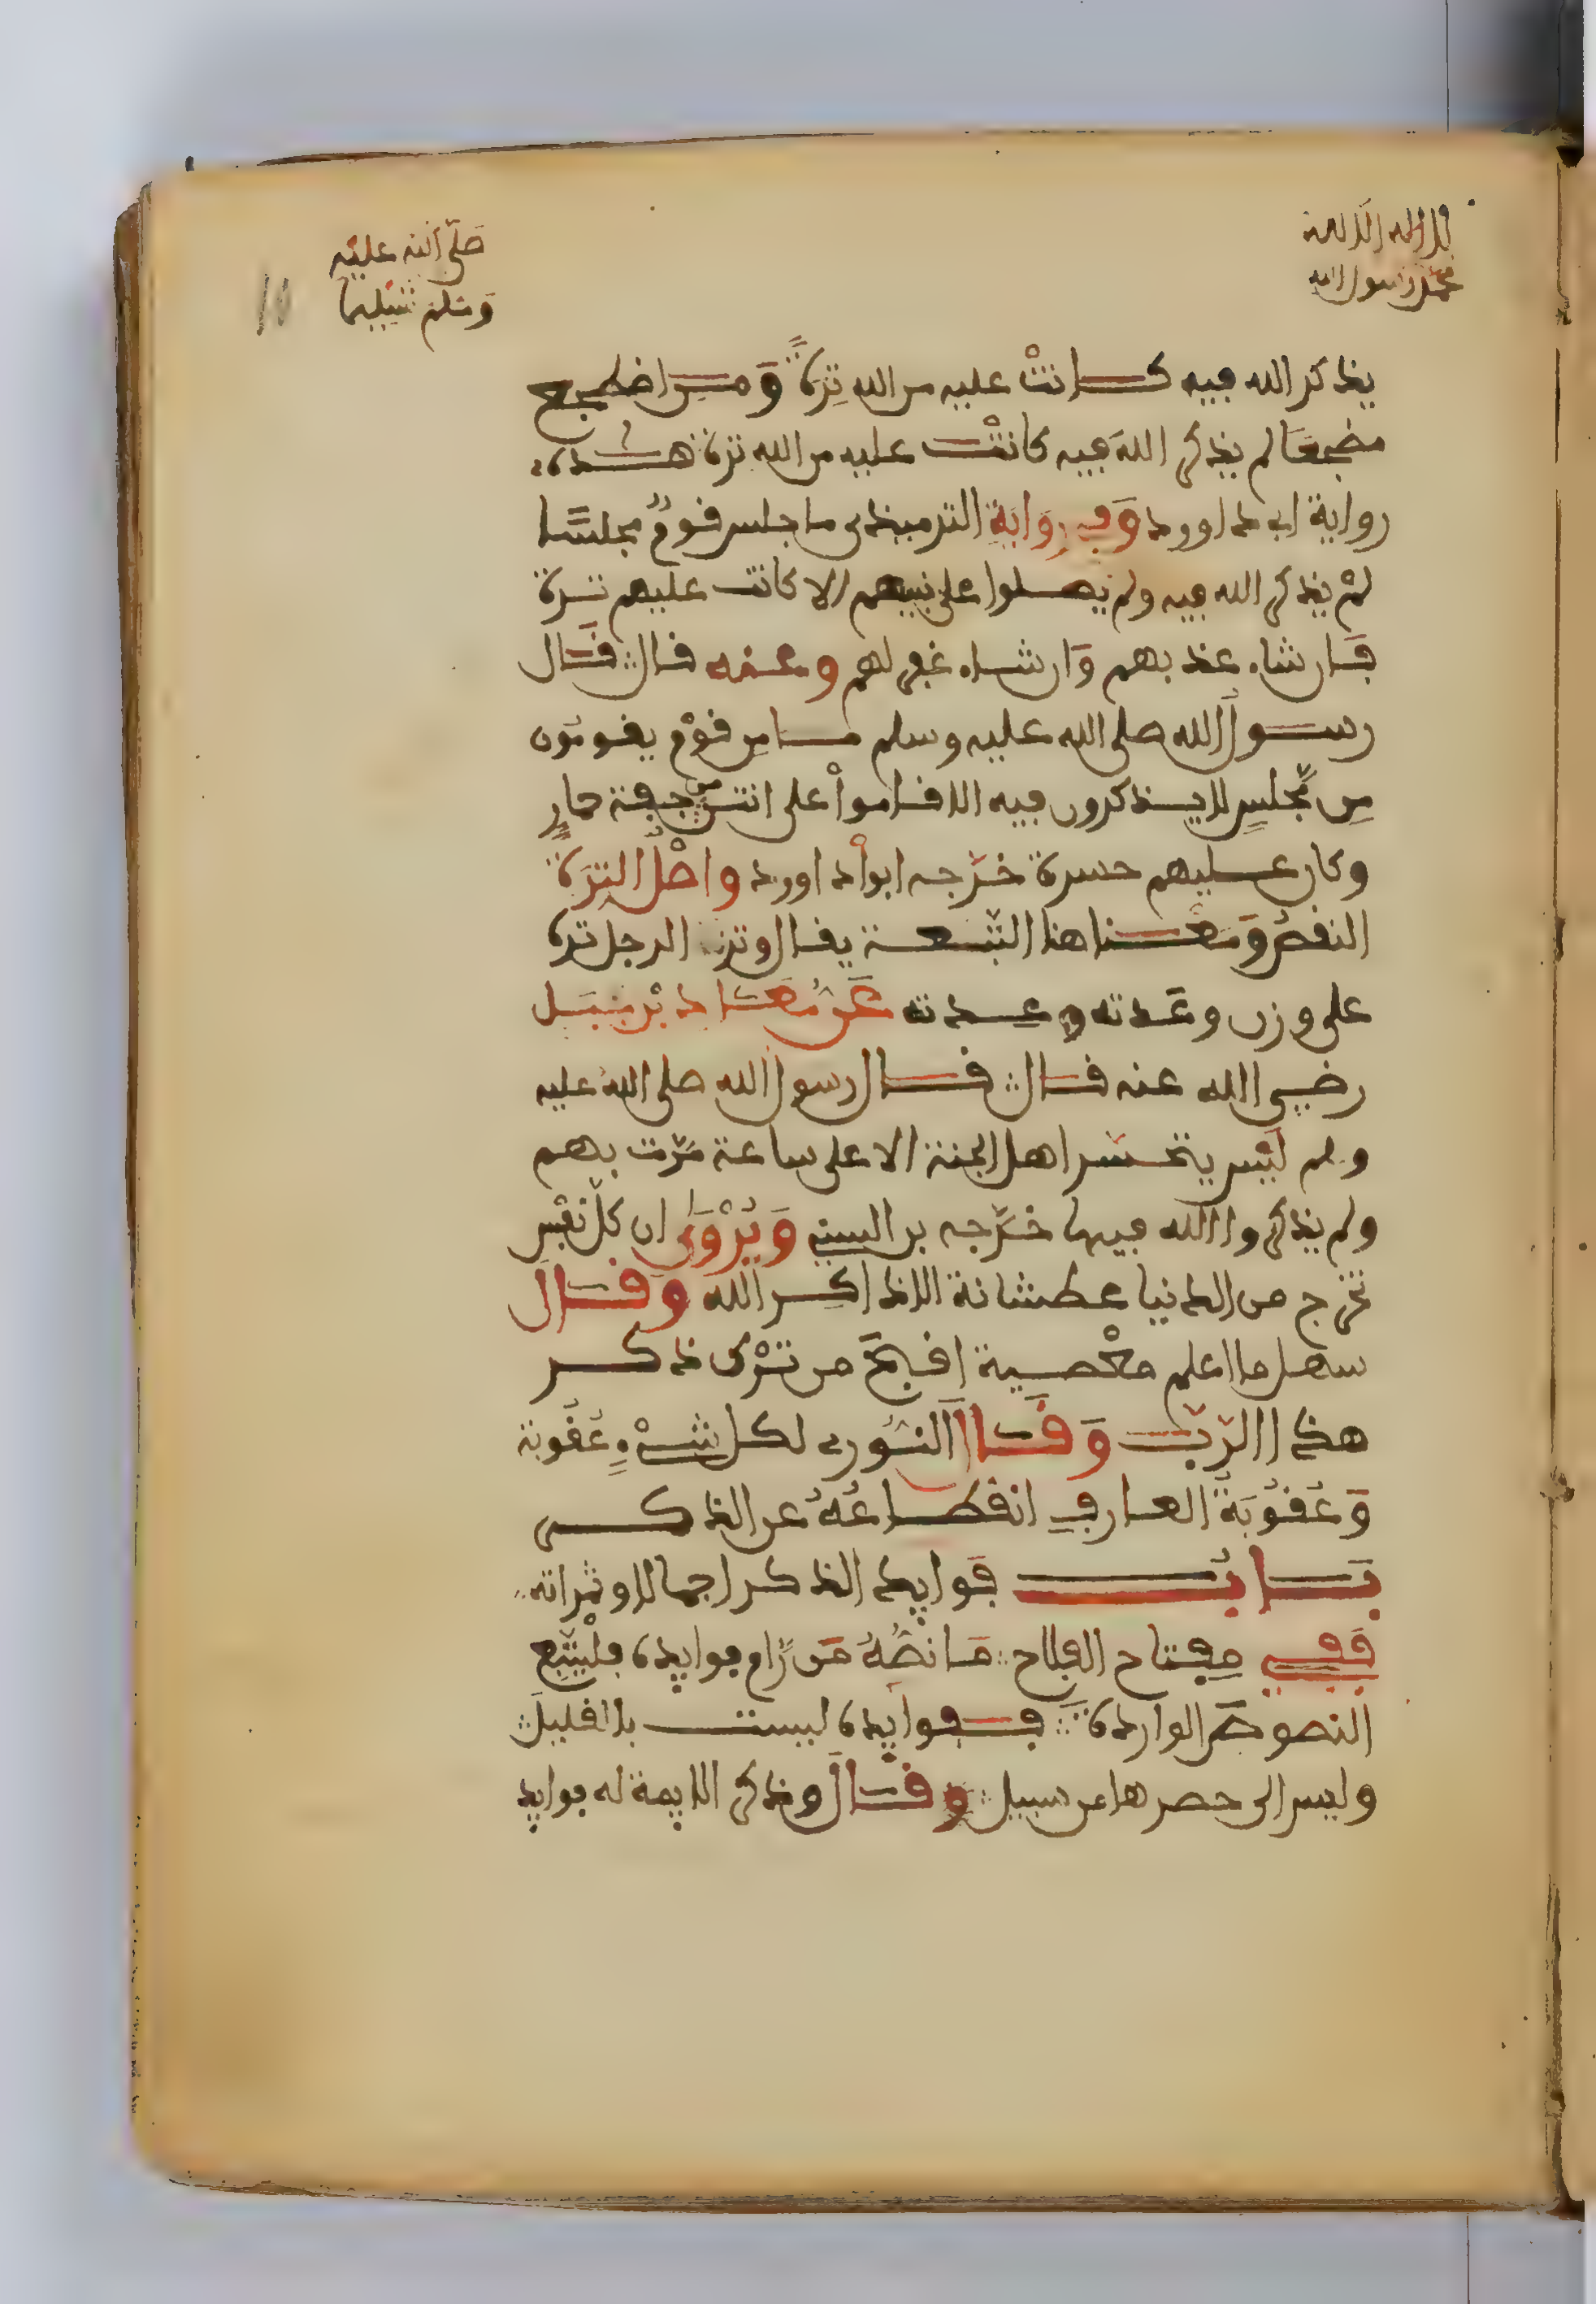 لا اله الا الله
محمد رسول الله
صَلَّى الله عليْه
وَسَلم تَسْلِيما
يذكر الله فيه كانتْ عليه من الله تِرَةً وَمن اضطجع
مضجعَا لم يذكر اللهَ فيه كانتْ عليه من الله ترة هذه
رواية ابي داوود وَفي رِوَايَةِ الترميذي ما جلس قومٌ مجلسًا
لمْ يذكر الله فيه ولم يُصلوا على نبيهم الا كانت عليهم ترة
فَان شاء عذبهم وَان شاء غفر لهم وعنه قال قَال
رسول الله صلى الله عليه وسلم ما مِن قوْمٍ يقومُون
مِن مَّجْلِسٍ لا يذكرون فيه الا قاموا على انتن من جيفة حمارٍ
وكان عليهم حسرة خرَّجه ابوا داوود واصْلُ التِرَة
النقصُ وَمَعْناها هنا التَّبعة يقال وتر الرجل ترة
على وزن وعَدته وعِدته عَن مُعَاد بْن جبَل
رضي الله عنه قال قال رسول الله صلى الله عليه
ولم ليْس يتحسَّر اهل الجنة الا على ساعة مرَّت بهم
ولم يذكروا الله فيها خرَّجه بن السني وَيُرْوَى ان كلّ نفْسٍ
تخرج من الدنيا عطشانة الا ذاكِر الله وقَال
سهل ما اعلم معْصية اقبحَ من ترْك ذكر
هذا الرَّبّ وَقَاال النُوري لكل شيْءٍ عُقُوبة
وَعُقُوبَةُ العارفِ انقطاعُهُ عن الذكر
بَابُ فَوايد الذكر اجمالا وثمراته
فَفِي مِفتاح الفلاح مَا نصُّهُ مَن رَّام فوايده فليْتتبَّع
النصوصَ الواردة فَفوايده ليست بالقليل
وليس الى حصرها من سبيل وقال وذكر الايمة له فوايد